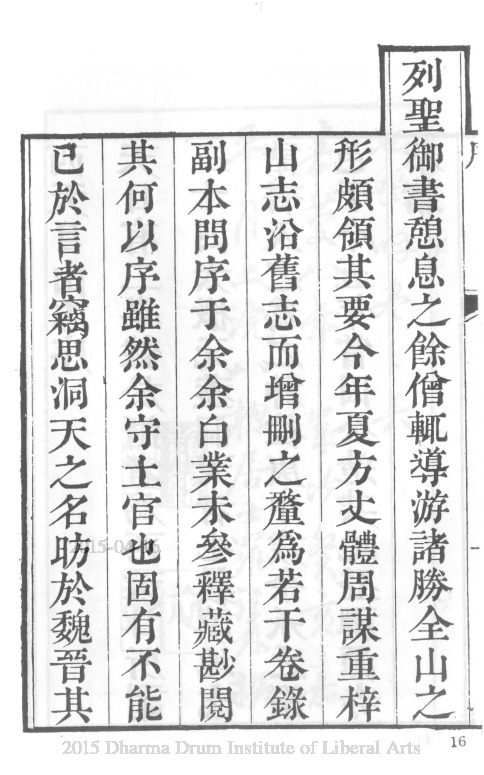 列聖御書憩息之餘僧輒導游諸勝全山之
形頗領其要今年夏方丈體周謀重梓
山志沿舊志而增刪之釐為若干卷錄
副本問序于余余白業未參釋藏尠閱
其何以序雖然余守土官也固有不能
已於言者竊思洞天之名昉於魏晉其
16
2015 Dharma Drum Institute of Liberal Arts